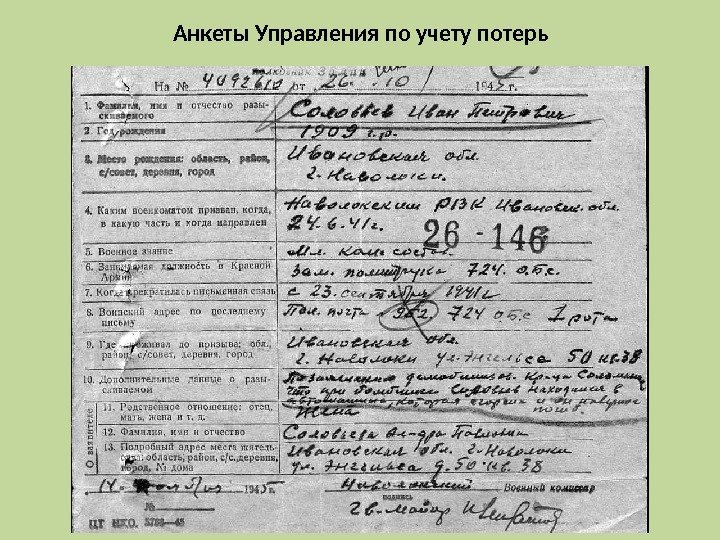 Анкеты Управления по учету потерь
На № 4092610 от 26. 10 194 г.
1. Фамилия, имя и отчество разы-
скиваемого
Соловьев Иван Петрович
2. Год рождения
1909 г.р.
3. Место рождения: область, район,
с/совет, деревня, город
Ивановская обл.
г. Наволоки.
4. Каким военкоматом призван, когда,
в какую часть и когда направлен
Наволокским РВК Ивановск. обл
24.6.41 г.
26-146
5. Военное звание
Мл. ком. состав.
6. Занимаемая должность в Красной
Армии
Зам. политрука 724. о.т.с.
7. Когда прекратилась письменная связь
с 23. сентября 1941 г
8. Воинский адрес по последнему
письму
Пол. почта 962, 724 о.т.с 1 рота
9. Где проживал до призыва: обл.,
район, с/совет, деревня, город
Ивановская обл.
г. Наволоки ул. Энгельса 50 кв. 38
10. Дополнительные данные о разы-
скиваемом
что при бомбежке Соловьев находился в
автомашине, которая сгорела и он наверное
погиб.
О заявителе
11. Родственное отношение: отец,
мать, жена и т. д.
Жена
12. Фамилия, имя и отчество
Соловьева Павловна
13. Подробный адрес места житель-
ства: область, район, с/с, деревня,
город, № дома
Ивановская обл. г. Наволоки
ул. Энгельса д. 50 кв. 38
14. 1945 г.
Наволокский Военный комиссар
подпись
№
гв. майор
ЦТ НКО. 3783—45